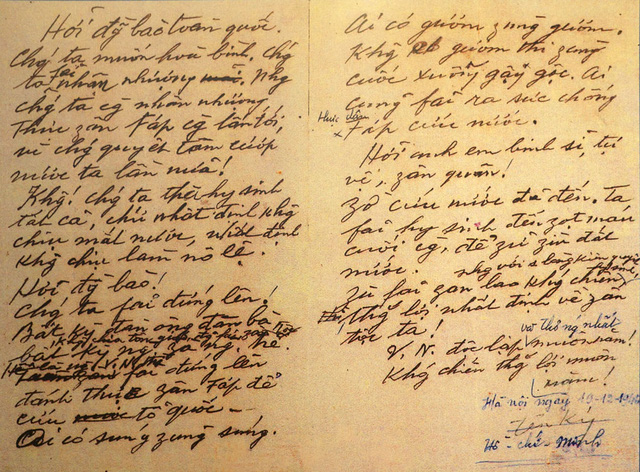 Hỡi đg̃ bào toàn quốc.
Chg' ta muốn hoà bình, chg'
ta fải nhân nhượng. Nhg
chg' ta cg nhân nhượng
Thực zân Fáp cg lấn tới,
vì chg' quyết tâm cướp
nước ta lần nữa!
Khg! Chg' ta thà hy sinh
tất cả, chứ nhất định khg
chịu mất nước, nhất định
khg chịu làm nô lệ.
Hỡi đg̃ bào!
Chg' ta fải đứng lên!
Bất kỳ đàn ông đàn bà
bất kỳ ng già ng trẻ.
fải đứng lên
đánh thực zân Fáp để
cứu tổ quốc -
Ai có súng zùng súng.
Ai có gươm zùng gươm,
Khg có gươm thì zùng
cuốc xuổng gậy gộc. Ai
cũng fải ra sức chống
thực zân
Fáp cứu nước.
Hỡi anh em binh sĩ, tự
vệ, zân quân!
Zờ cứu nước đã đến. Ta
fải hy sinh đến zọt máu
cuối cg, để zữ zìn đất
nước.
Zù fải zan lao khg chiến
nhg với 1 lòng kiên quyết
thg' lợi nhất định về zân
tộc ta!
V. N. độc lập và thống nhất muôn năm!
Khg' chiến thg' lợi muôn
năm!
Hà nội ngày 19-12-1946
Hồ - chí - Minh